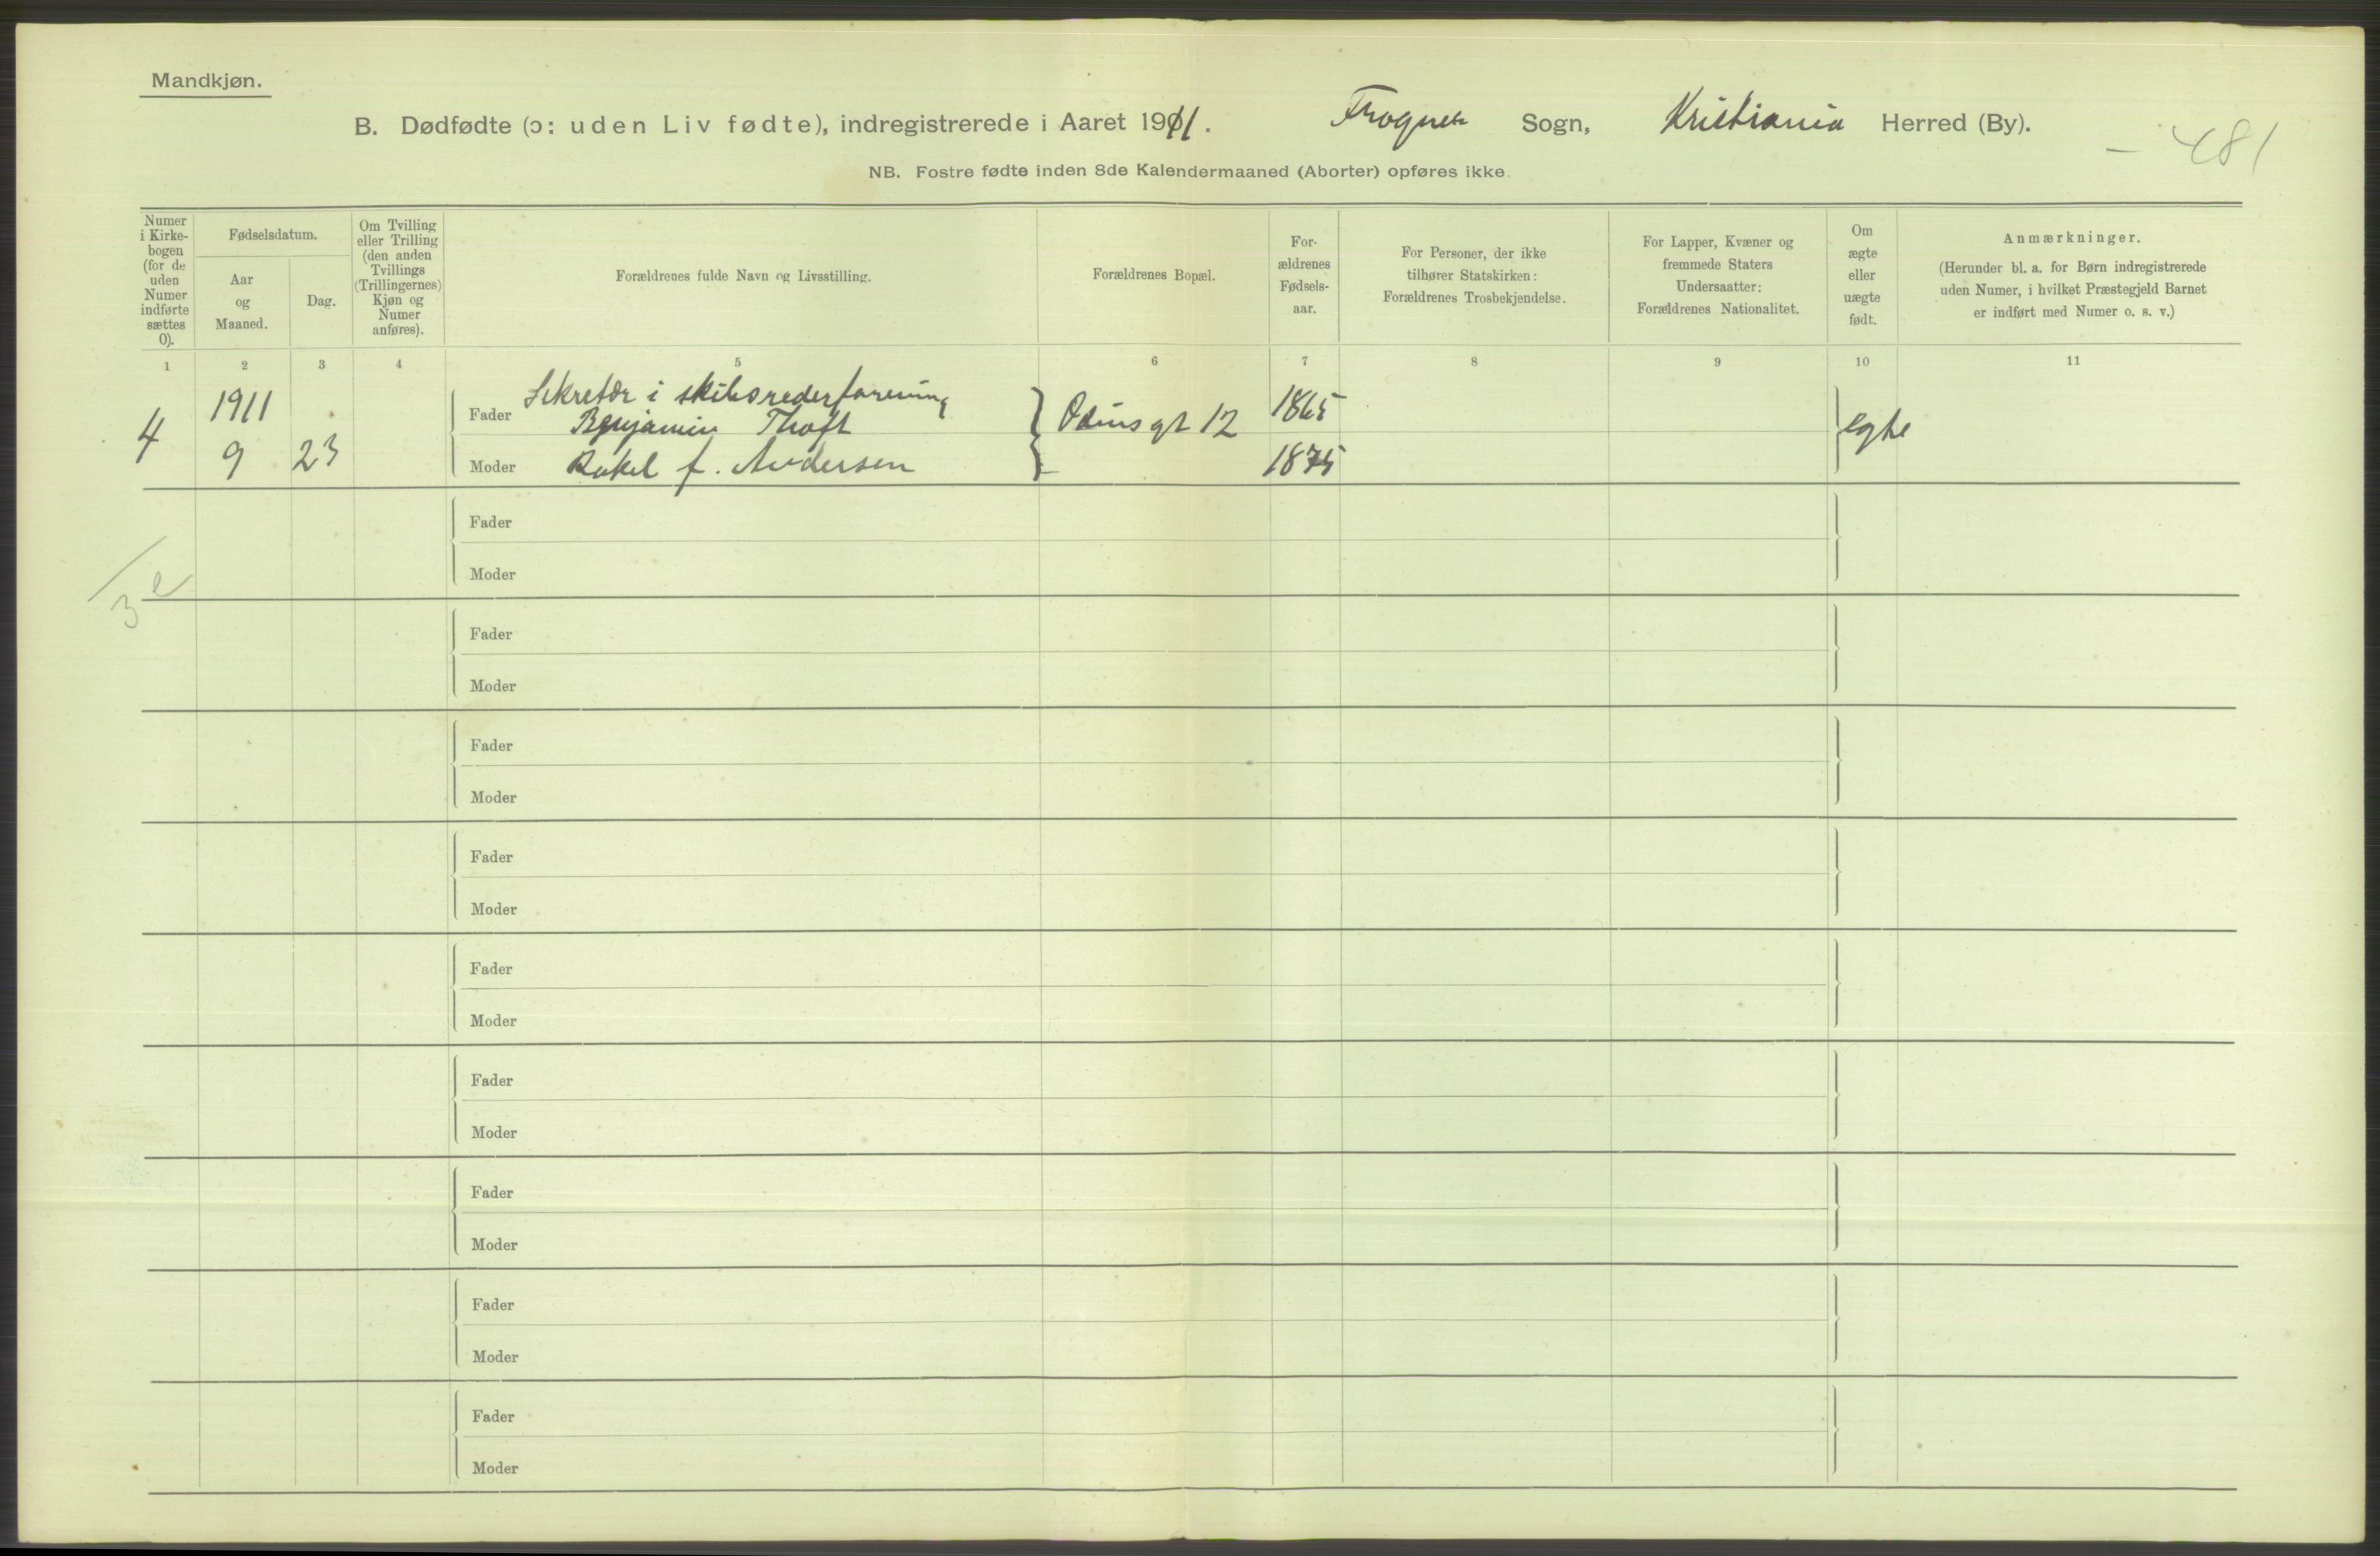 Mandkjøn.
B. Dødfødte (ɔ: uden Liv fødte), indregistrerede i Aaret 1911. Frogner Sogn, Kristiania Herred (By).
- 481
NB. Fostre fødte inden 8de Kalendermaaned (Aborter) opføres ikke.
Numer i Kirke-bogen (for de uden Numer indførte sættes 0).
Fødselsdatum.
Aar og Maaned.
Dag.
Om Tvilling eller Trilling (den anden Tvillings (Trillingernes) Kjøn og Numer anføres).
Forældrenes fulde Navn og Livsstilling.
Forældrenes Bopæl.
For-ældrenes Fødsels-aar.
For Personer, der ikke tilhører Statskirken: Forældrenes Trosbekjendelse.
For Lapper, Kvæner og fremmede Staters Undersaatter: Forældrenes Nationalitet.
Om ægte eller uægte født.
Anmærkninger.
(Herunder bl. a. for Børn indregistrerede uden Numer, i hvilket Præstegjeld Barnet er indført med Numer o. s. v.)
1 2 3 4 5 6 7 8 9 10 11
4 1911 9 23
Sekretær i skibsrederforening
Fader Benjamin Thoft Odins gt 12 1865 egte
Moder Rakel f. Andersen 1875
Fader
Moder
3 e
Fader
Moder
Fader
Moder
Fader
Moder
Fader
Moder
Fader
Moder
Fader
Moder
Fader
Moder
Fader
Moder